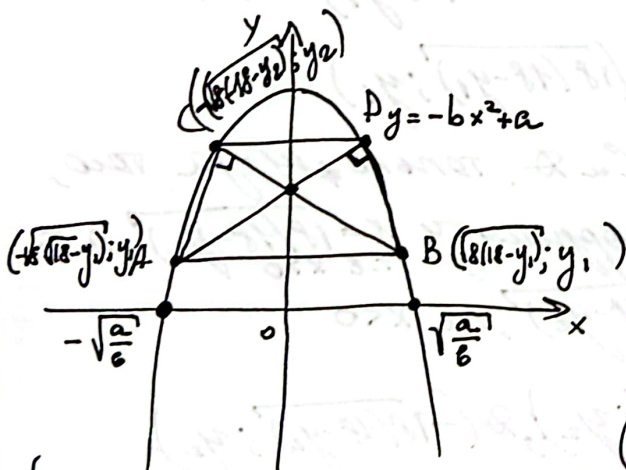 y
C(-√18(18-y₂); y₂)
D y = -bx² + a
(-√18(18-y₁); y₁) A
B (√18(18-y₁); y₁
-√a/b
0
√a/b
x